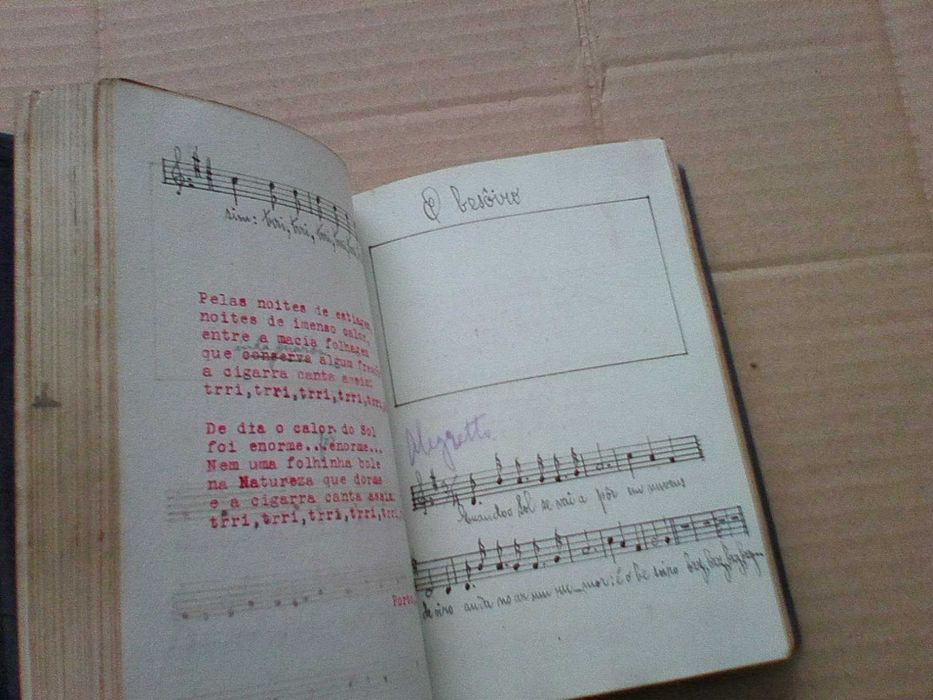 sim: trri, trri, trri, trri, trri
Pelas noites de estiagem,
noites de imenso calor,
entre a macia folhagem
que conserva algum
a cigarra canta assim:
trri,trri,trri,trri,trri,
De dia o calor do Sol
foi enorme...enorme...
Nem uma folhinha bole
na Natureza que dorme
e a cigarra canta assim
trri,trri,trri,trri,trri,
Porto
O besôiro
Alegretto
Quando o Sol se vai a pôr em nuvens
de oiro anda no ar um ru_mor: é o besoiro